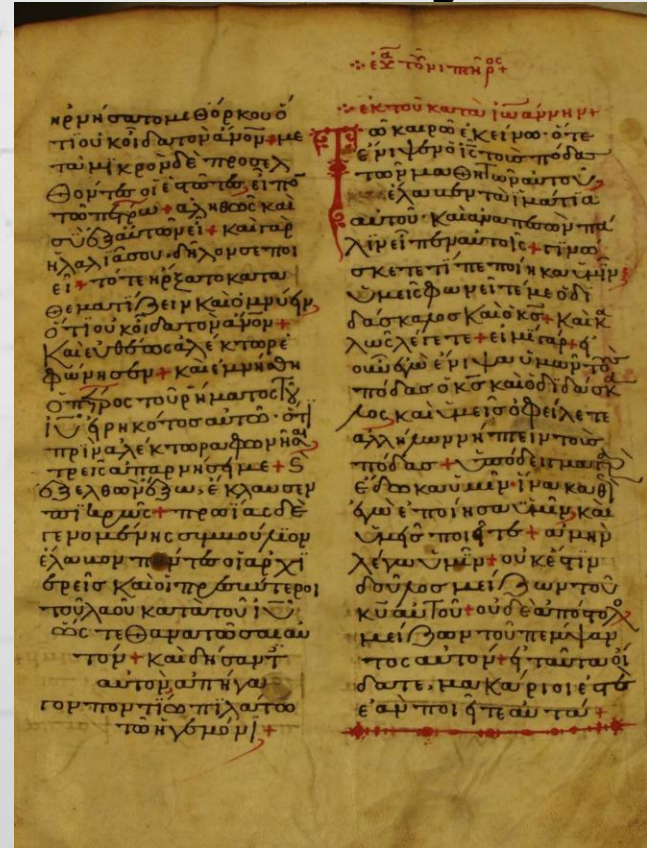 ἠρνήσατο μεθ᾽ ὅρκου ὅ
τι οὐκ οἶδα τὸν ἄ̅ν̅ο̅ν̅ + με
τὰ μικρὸν δὲ προσελ
θόντες οἱ ἑστῶτες, εἶπο̅
τῶ πέτρω + ἀληθῶς καὶ
σὺ ἐξ αὐτῶν εἶ + καὶ γὰρ
ἡ λαλιά σου δῆλόν σε ποι
εῖ + τότε ἤρξατο κατα
θεματίζειν καὶ ὀμνύειν
ὅτι οὐκ οἶδα τὸν ἄ̅ν̅ο̅ν̅ +
καὶ εὐθέως ἀλέκτωρ ἐ
φώνησεν + καὶ ἐμνήσθη
ὁ πέτρος τοῦ ῥήματος τοῦ
ι̅υ̅ εἰρηκότος αὐτῶ· ὅτι
πρὶν ἀλέκτορα φωνῆσαι
τρεῖς ἀπαρνήση με + ϛ
ἐξελθὼν ἔξω, ἔκλαυσεν
πικρῶς + πρωΐας δὲ
γενομένης συμβούλιον
ἔλαβον πάντες οἱ ἀρχι
ερεῖς καὶ οἱ πρεσβύτεροι
τοῦ λαοῦ κατὰ τοῦ ι̅υ̅
ὥστε θανατῶσαι αὐ
τόν + καὶ δήσαντ
αὐτὸν ἀπήγα
γον ποντίω πιλάτω
τῶ ἡγεμόνι +
ἐκ τοῦ κατὰ ἰωάννην +
Τῶ καιρῶ ἐκείνω· ὅτε
ἔνιψεν ὁ ι̅ς̅ τοὺς πόδας
τῶν μαθητῶν αὐτοῦ,
ἔλαβεν τὰ ἱμάτια
αὐτοῦ· καὶ ἀναπεσὼν πά
λιν εἶπεν αὐτοῖς + γινώ
σκετε τί πεποίηκα ὑμῖν
ὑμεῖς φωνεῖτέ με ὁ δι
δάσκαλος καὶ ὁ κ̅ς̅ + καὶ κα
λῶς λέγετε + εἰμὶ γάρ + εἰ
οὖν ἐγὼ ἔνιψα ὑμῶν τοὺς
πόδας ὁ κ̅ς̅ καὶ ὁ διδάσκα
λος καὶ ὑμεῖς ὀφείλετε
ἀλλήλων νίπτειν τοὺς
πόδας + ὑπόδειγμα γὰρ
ἔδωκα ὑμῖν· ἵνα καθὼς
ἐγὼ ἐποίησα ὑμῖν, καὶ
ὑμεῖς ποιῆτε + ἀμὴν
λέγω ὑμῖν + οὐκ ἔστιν
δοῦλος μείζων τοῦ
κ̅υ̅ αὐτοῦ + οὐδὲ ἀπόστολος
μείζων τοῦ πέμψαν
τος αὐτόν + εἰ ταῦτα οἴ
δατε, μακάριοί ἐστε
ἐὰν ποιῆτε αὐτά +